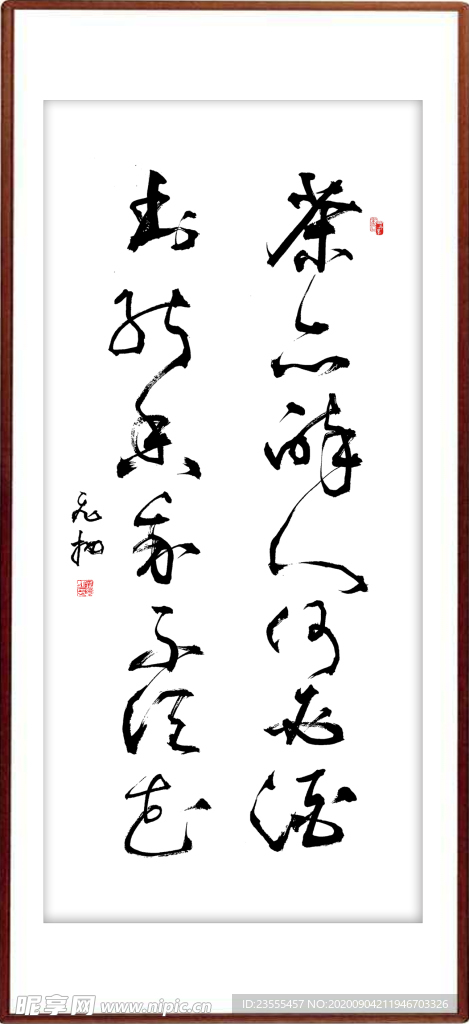 茶亦醉人何必酒
书能香我不须花
昵享网 www.nipic.cn
ID:23555457 NO:20200904211946703326